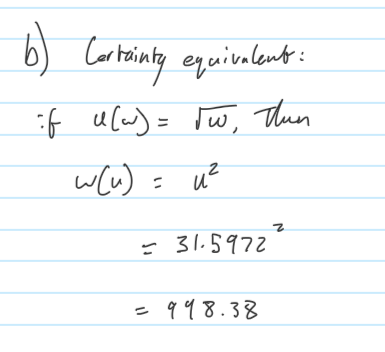 b) Certainty equivalent:
if u(w) = √w, then
w(u) = u²
= 31.5972²
= 998.38